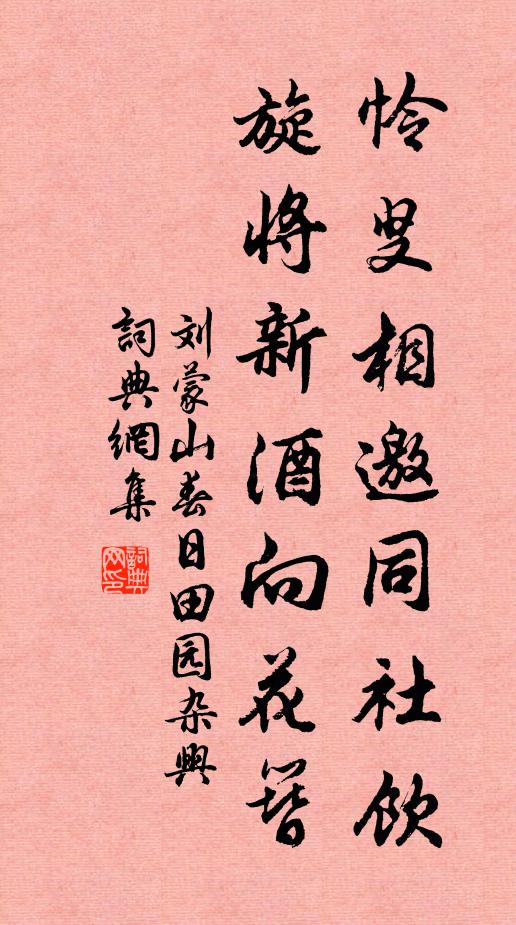 怜叟相邀同社饮
旋将新酒向花簪
刘蒙山春日田园杂興
詞典網集
詞典
网印